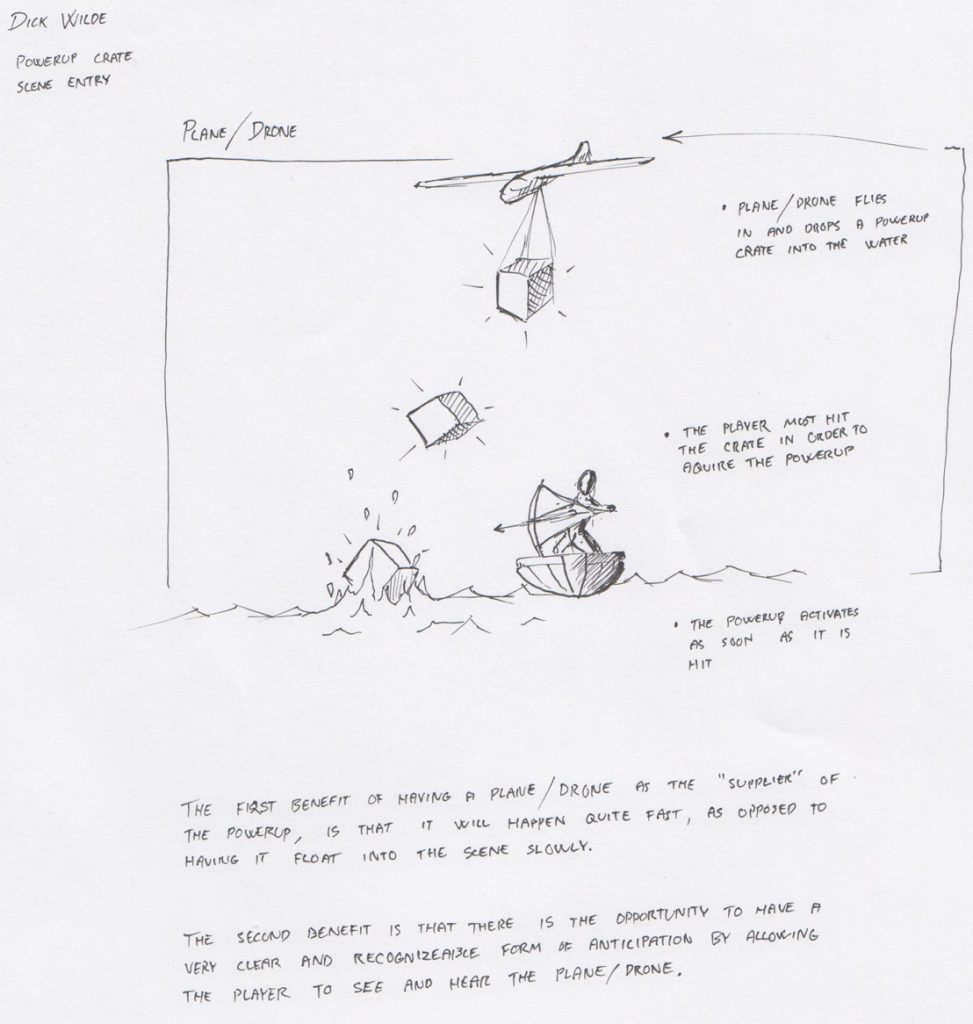 DICK WILDE
POWERUP CRATE
SCENE ENTRY
PLANE/DRONE
• PLANE/DRONE FLIES
IN AND DROPS A POWERUP
CRATE INTO THE WATER
• THE PLAYER MUST HIT
THE CRATE IN ORDER TO
AQUIRE THE POWERUP
• THE POWERUP ACTIVATES
AS SOON AS IT IS
HIT
THE FIRST BENEFIT OF HAVING A PLANE/DRONE AS THE "SUPPLIER" OF
THE POWERUP, IS THAT IT WILL HAPPEN QUITE FAST, AS OPPOSED TO
HAVING IT FLOAT INTO THE SCENE SLOWLY.
THE SECOND BENEFIT IS THAT THERE IS THE OPPORTUNITY TO HAVE A
VERY CLEAR AND RECOGNIZEABLE FORM OF ANTICIPATION BY ALLOWING
THE PLAYER TO SEE AND HEAR THE PLANE/DRONE.